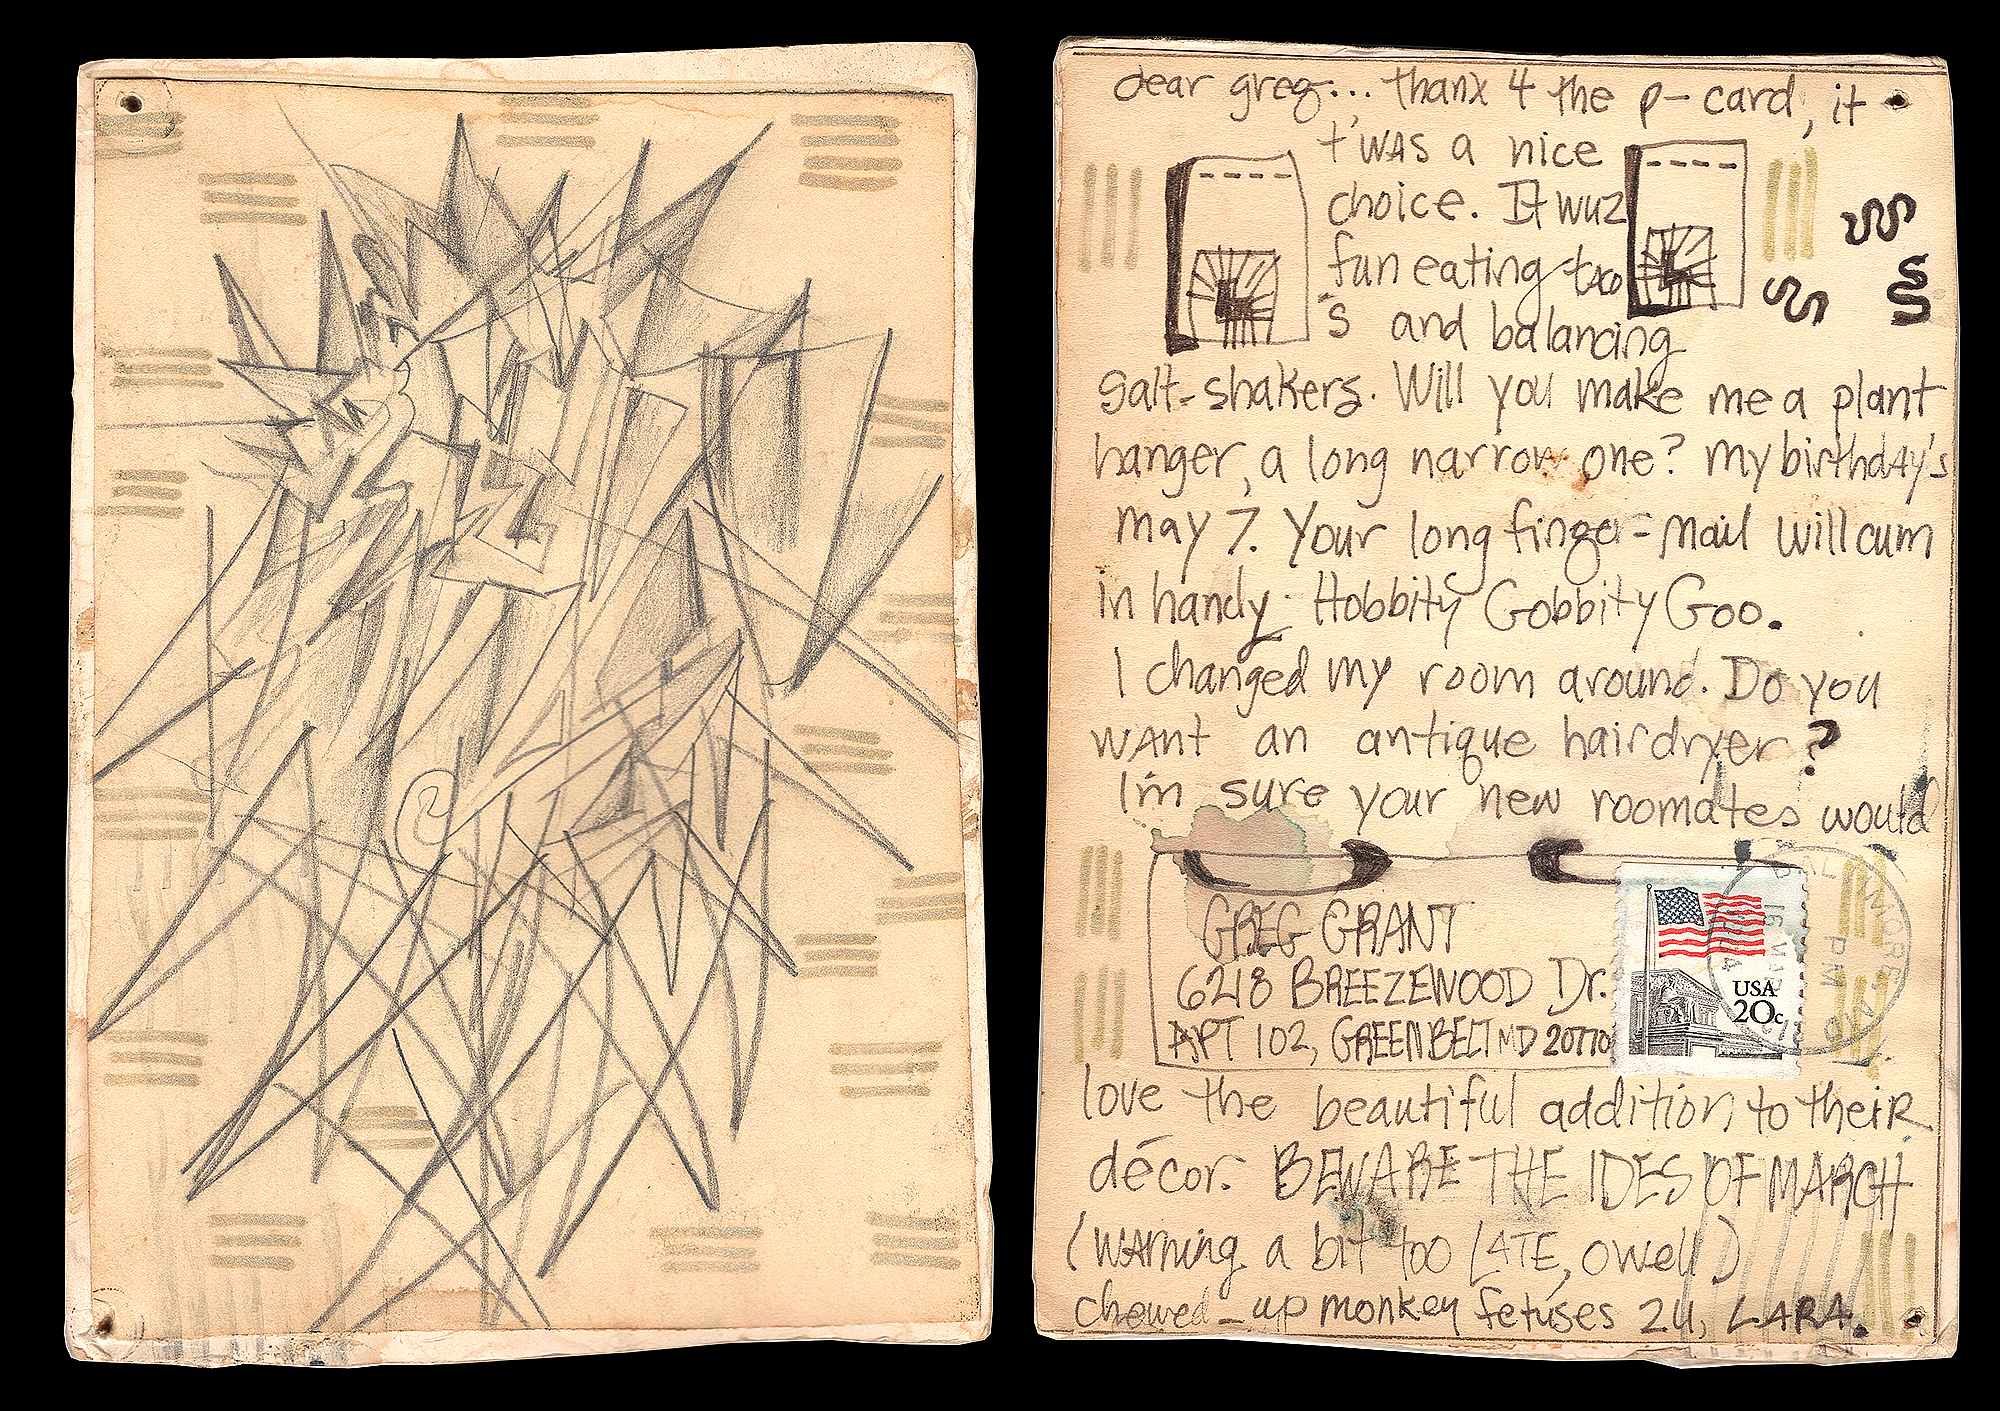 dear greg... thanx 4 the p-card, it
t'was a nice
choice. It wuz
fun eating
's and balancing
salt-shakers. Will you make me a plant
hanger, a long narrow one? My birthday's
may 7. Your long finger-nail will cum
in handy. Hobbity Gobbity Goo.
I changed my room around. Do you
want an antique hairdryer?
I'm sure your new roomates would
GREG GRANT
6218 BREEZEWOOD Dr.
APT 102, GREENBELT MD 20770
USA
20c
PM
love the beautiful addition to their
décor. BEWARE THE IDES OF MARCH
(warning a bit too LATE, owell)
chewed-up monkey fetuses 2U, LARA.